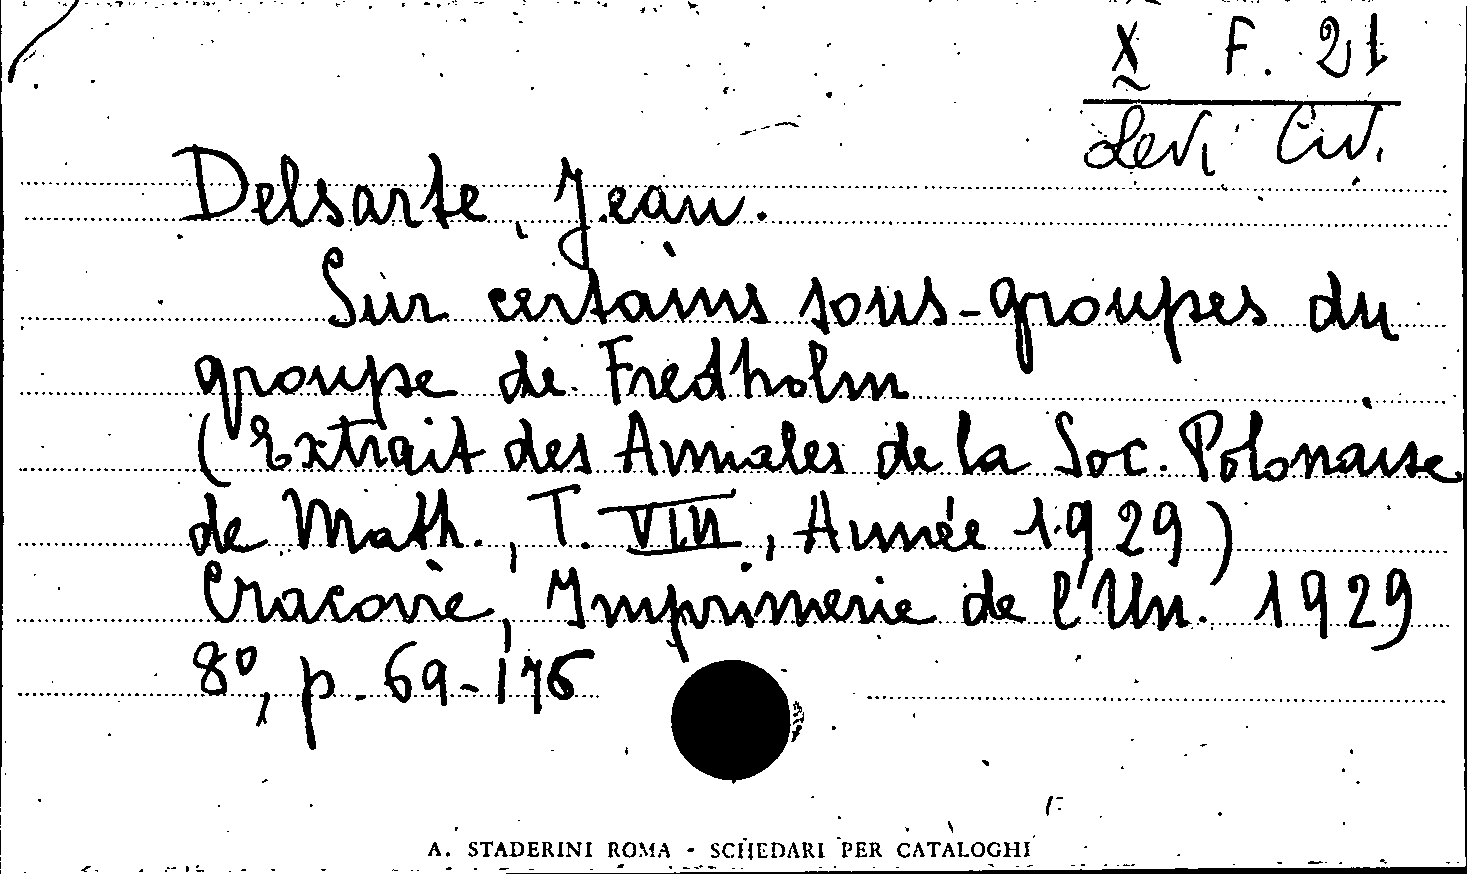 X F. 21
Levi Civ.
Delsarte, Jean.
Sur certains sous-groupes du
groupe de Fredholm
(Extrait des Annales de la Soc. Polonaise
de Math., T. VIII, Année 1929)
Cracovie, Imprimerie de l'Un. 1929
8º, p. 69-176
A. STADERINI ROMA - SCHEDARI PER CATALOGHI